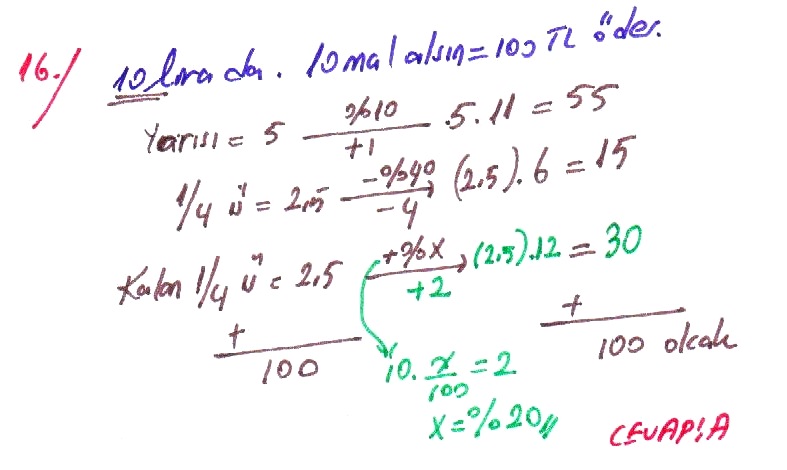 16./ 10 lira da. 10 mal alsın = 100 TL öder.
Yarısı = 5 %10 +1 5.11 = 55
1/4 ü = 2,5 -%40 -4 (2.5).6 = 15
Kalan 1/4 ü = 2.5 +%x +2 (2.5).12 = 30
+ 100 + 100 olcak
10. x/100 = 2
x = %20//
CEVAP: A